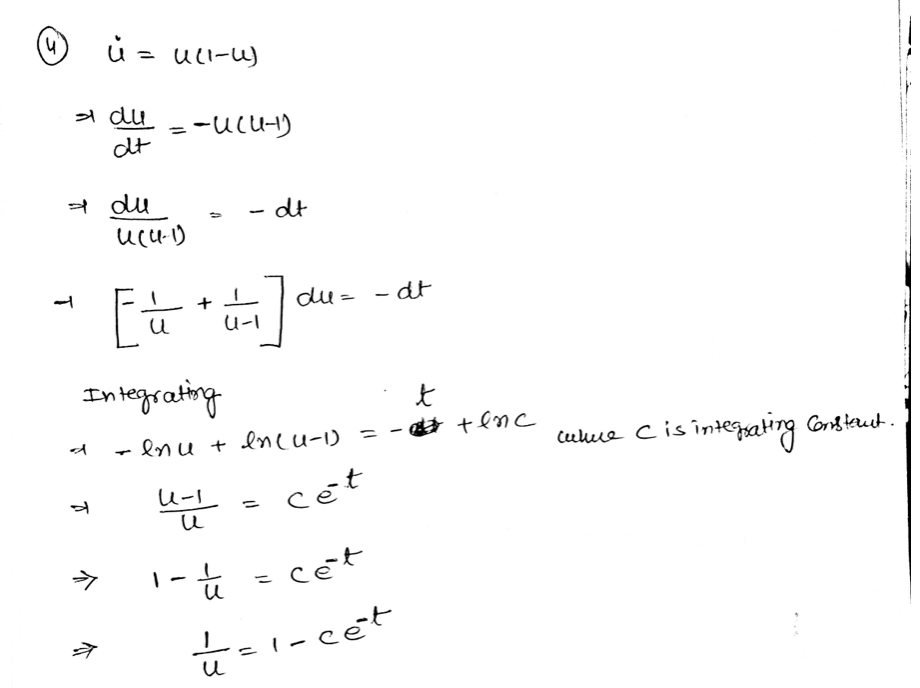 ④ u̇ = u(1-u)
⇒ du/dt = -u(u-1)
⇒ du/u(u-1) = - dt
⇒ [-1/u + 1/u-1] du = - dt
Integrating
⇒ - ln u + ln(u-1) = - t + ln c where C is integrating Constant.
⇒ u-1/u = c e^-t
⇒ 1 - 1/u = c e^-t
⇒ 1/u = 1 - c e^-t